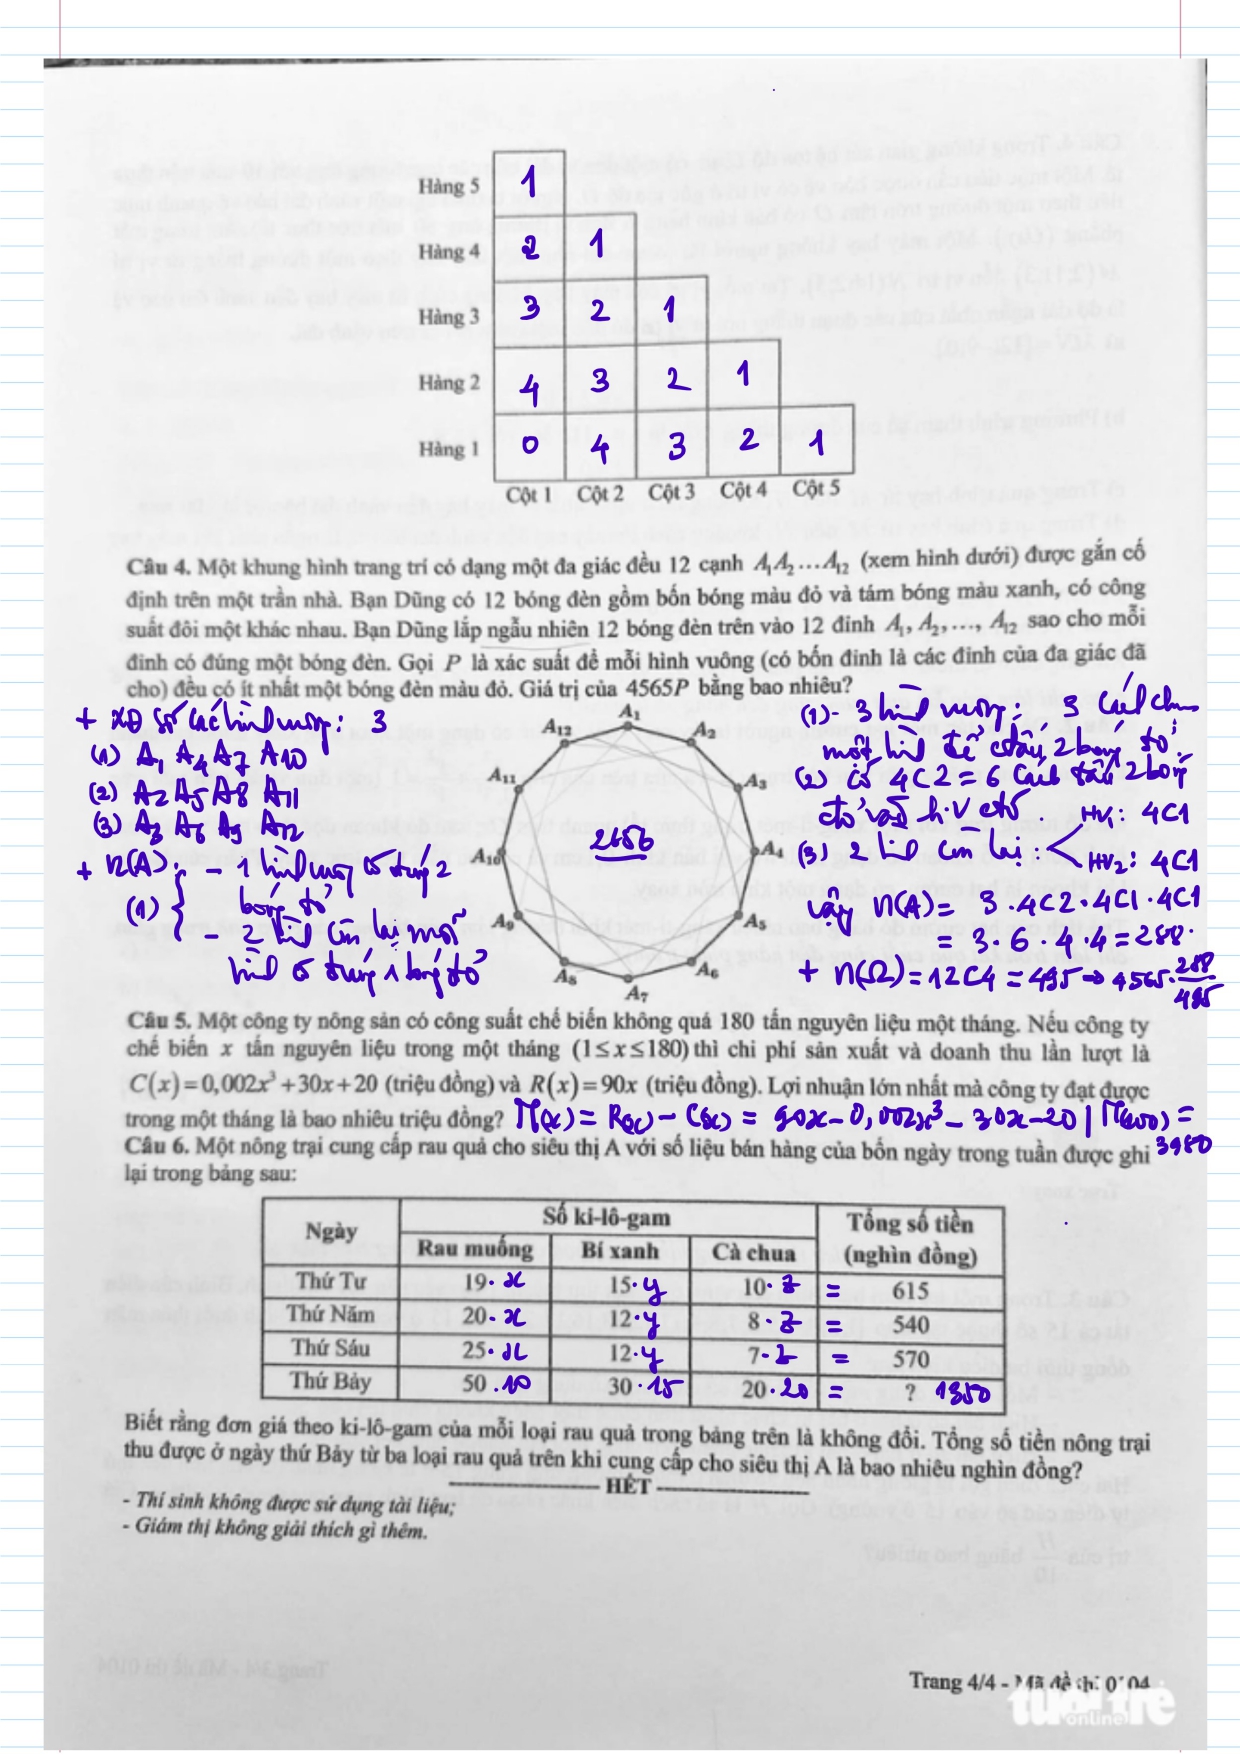 Hàng 5 1
Hàng 4 2 1
Hàng 3 3 2 1
Hàng 2 4 3 2 1
Hàng 1 0 4 3 2 1
Cột 1 Cột 2 Cột 3 Cột 4 Cột 5
Câu 4. Một khung hình trang trí có dạng một đa giác đều 12 cạnh A₁A₂...A₁₂ (xem hình dưới) được gắn cố
định trên một trần nhà. Bạn Dũng có 12 bóng đèn gồm bốn bóng màu đỏ và tám bóng màu xanh, có công
suất đôi một khác nhau. Bạn Dũng lắp ngẫu nhiên 12 bóng đèn trên vào 12 đỉnh A₁, A₂,..., A₁₂ sao cho mỗi
đỉnh có đúng một bóng đèn. Gọi P là xác suất để mỗi hình vuông (có bốn đỉnh là các đỉnh của đa giác đã
cho) đều có ít nhất một bóng đèn màu đỏ. Giá trị của 4565P bằng bao nhiêu?
+ XĐ số các hình vuông: 3
(1) A₁ A₄ A₇ A10
(2) A2 A5 A8 A11
(3) A3 A6 A9 A12
+ n(A): - 1 hình vuông có đúng 2
(1) bóng đỏ
- 2 hình còn lại mỗi
hình có đúng 1 bóng đỏ
A₁ A₂ A₃ A₄ A₅ A₆ A₇ A₈ A₉ A₁₀ A₁₁ A₁₂
2656
(1)- 3 hình vuông: 3 cách chọn
một hình để chứa 2 bóng đỏ.
(2) có 4C2 = 6 cách 2 bóng
đỏ vào h.V đó.
(3) 2 hình còn lại: HV₁: 4C1
HV₂: 4C1
Vậy n(A) = 3.4C2.4C1.4C1
= 3.6.4.4 = 288.
+ n(Ω) = 12C4 = 495 ⇒ 4565.288/495
Câu 5. Một công ty nông sản có công suất chế biến không quá 180 tấn nguyên liệu một tháng. Nếu công ty
chế biến x tấn nguyên liệu trong một tháng (1≤x≤180) thì chi phí sản xuất và doanh thu lần lượt là
C(x)=0,002x³+30x+20 (triệu đồng) và R(x)=90x (triệu đồng). Lợi nhuận lớn nhất mà công ty đạt được
trong một tháng là bao nhiêu triệu đồng? Π(x) = R(x) - C(x) = 90x - 0,002x³ - 30x - 20 | Π(100) =
3980
Câu 6. Một nông trại cung cấp rau quả cho siêu thị A với số liệu bán hàng của bốn ngày trong tuần được ghi
lại trong bảng sau:
Ngày Số ki-lô-gam Tổng số tiền (nghìn đồng)
Rau muống Bí xanh Cà chua
Thứ Tư 19.x 15.y 10.z = 615
Thứ Năm 20.x 12.y 8.z = 540
Thứ Sáu 25.x 12.y 7.z = 570
Thứ Bảy 50.10 30.15 20.20 = ? 1350
Biết rằng đơn giá theo ki-lô-gam của mỗi loại rau quả trong bảng trên là không đổi. Tổng số tiền nông trại
thu được ở ngày thứ Bảy từ ba loại rau quả trên khi cung cấp cho siêu thị A là bao nhiêu nghìn đồng?
HẾT
- Thí sinh không được sử dụng tài liệu;
- Giám thị không giải thích gì thêm.
Trang 4/4 - Mã đề thi 0104
tuổi trẻ
online